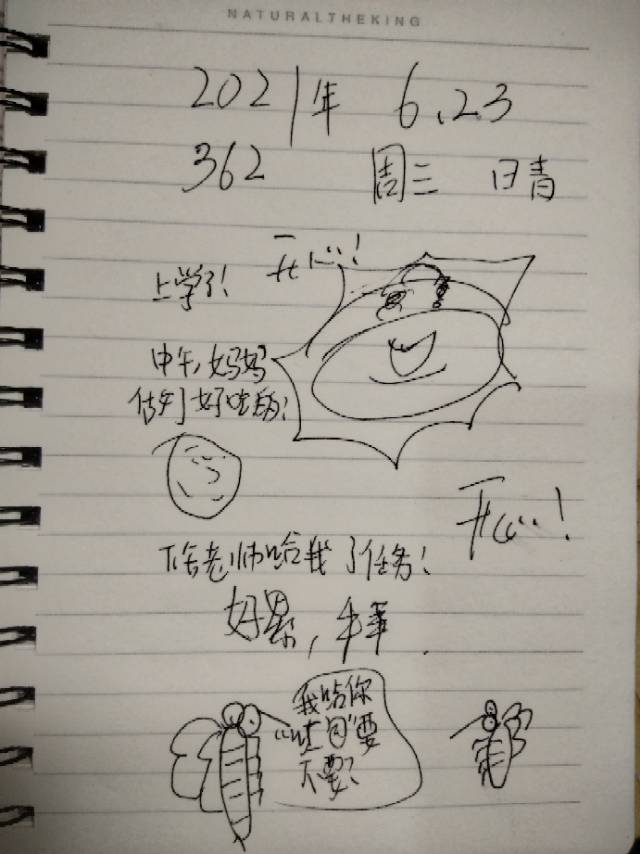 NATURALTHEKING
2021年 6.23
362 周三 日青
开心!
上学了!
中午,妈妈
好吃
开心!
老师给我了任务!
好累,
我给你
要
不要?